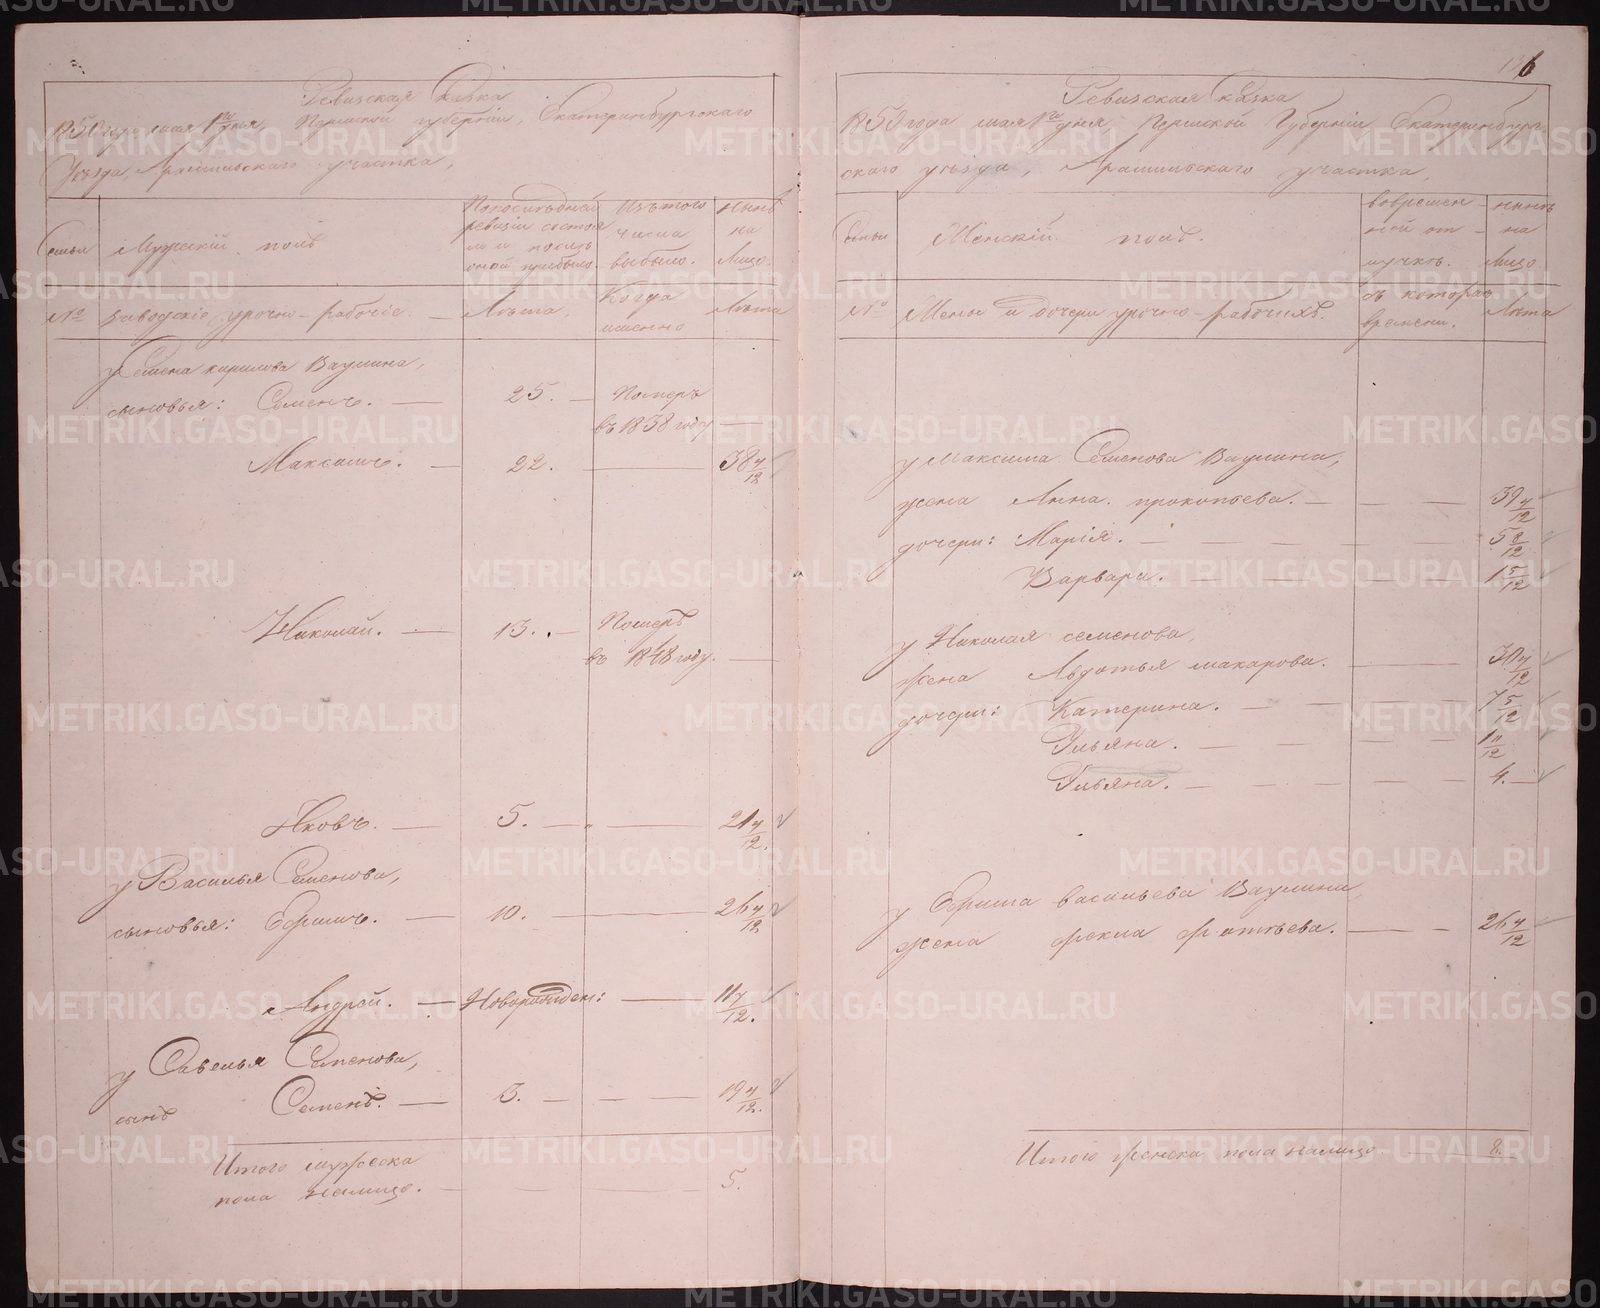 116
Ревизская сказка
1850 года мая 1го дня, Пермской губерніи, Екатеринбургского
Уезда, Арамильского участка,
Семьи
Мужскій полъ
По последней ревизіи состояло и после оной прибыло.
Изъ того числа выбыло.
Ныне на лицо.
№
Заводскіе урочно-рабочіе.
Лета.
Когда именно
Лета
у Семена Кирилова Ваулина,
сыновья: Семенъ. — 25. — Померъ
въ 1838 году —
Максимъ. — 22. — 38 7/12
Николай. — 13. — Померъ
въ 1848 году. —
Яковъ. — 5. — „ — 21 7/12.
у Василья Семенова,
сыновья: Ефимъ. — 10. — 26 7/12
Андрей. — Новорожден: — 11 7/12.
у Савелья Семенова,
сынъ Семенъ. — 3. — — 19 7/12.
Итого мужеска
пола налицо. — — — 5.
Ревизская сказка
1850 года мая 1го дня Пермской Губерніи, Екатеринбург-
ского уезда, Арамильского участка,
Семьи
Женскій полъ.
во временной отлучке.
ныне на лицо
№
Жены и дочери урочно-рабочихъ.
съ котораго времени.
Лета
у Максима Семенова Ваулина,
жена Анна Прокопьева. — — 39 7/12
дочери: Марія. — — — 5 8/12
Варвара. — — — 1 5/12
у Николая Семенова,
жена Авдотья Макарова. — — 30 7/12
дочери: Катерина. — — — 7 5/12
Ульяна. — — — 1 11/12
Ульяна. — — — 4. —
у Ефима Васильева Ваулина,
жена Фекла Фотіева. — — 26 7/12
Итого женска пола налицо — 8.
METRIKI.GASO-URAL.RU